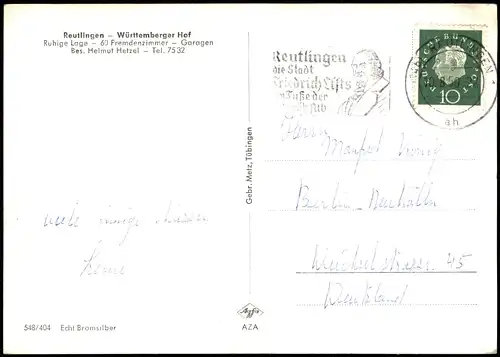 Reutlingen – Württemberger Hof
Ruhige Lage – 60 Fremdenzimmer – Garagen
Bes. Helmut Hetzel – Tel. 7532
Reutlingen
die Stadt
Friedrich Lists
Fuße der
Alb
DEUTSCHE BUNDESPOST
10
ah
Herrn
Manfred König
Berlin-Neukölln
45
Gebr. Metz, Tübingen
viele innige
Agfa
AZA
548/404 Echt Bromsilber